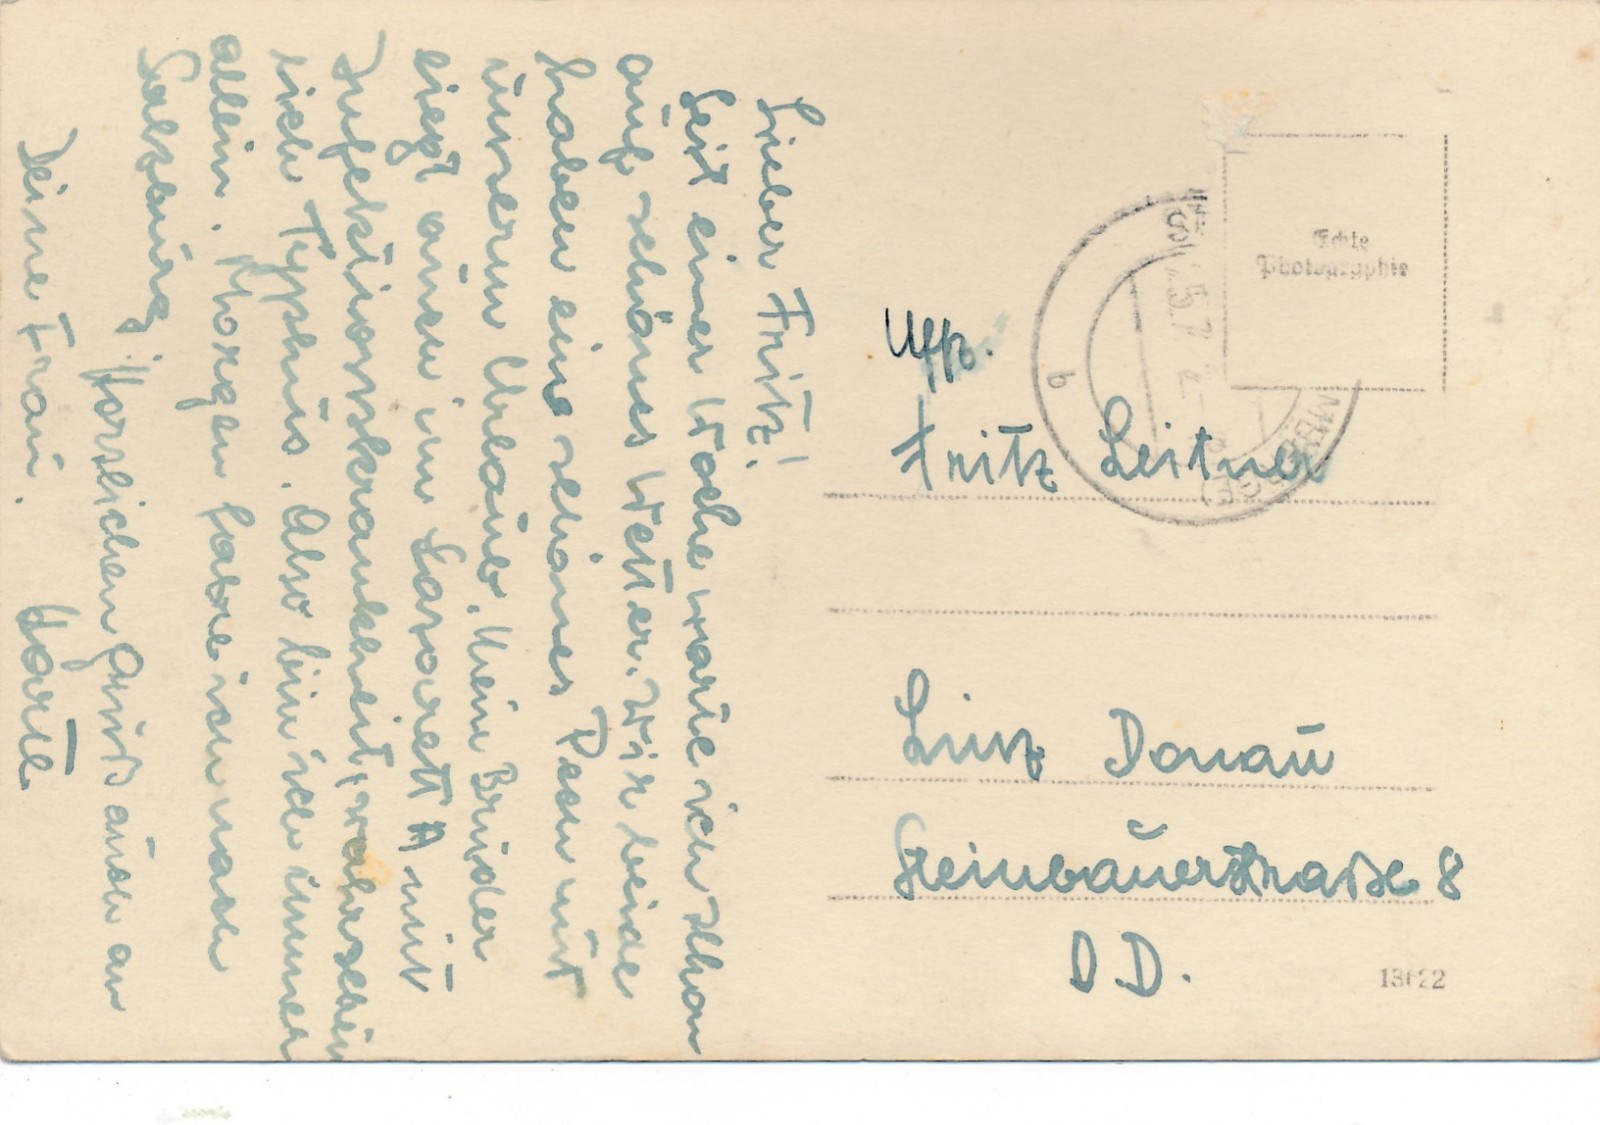 Lieber Fritz!
Seit einer Woche warte ich schon
auf schönes Wetter. Wir beide
haben eine schönes Pech mit
unserem Urlaub. Mein Bruder
liegt oben im Lazarett A mit
Infektionskrankheit, wahrschein
lich Typhus. Also bin ich immer
allein. Morgen fahre ich nach
Salzburg. Herzlichen Gruß auch an
Deine Frau.
Uffz.
Fritz Leitner
Linz Donau
Steinbauerstraße 8
O.D.
Echte
Photographie
5.7.
b
13622